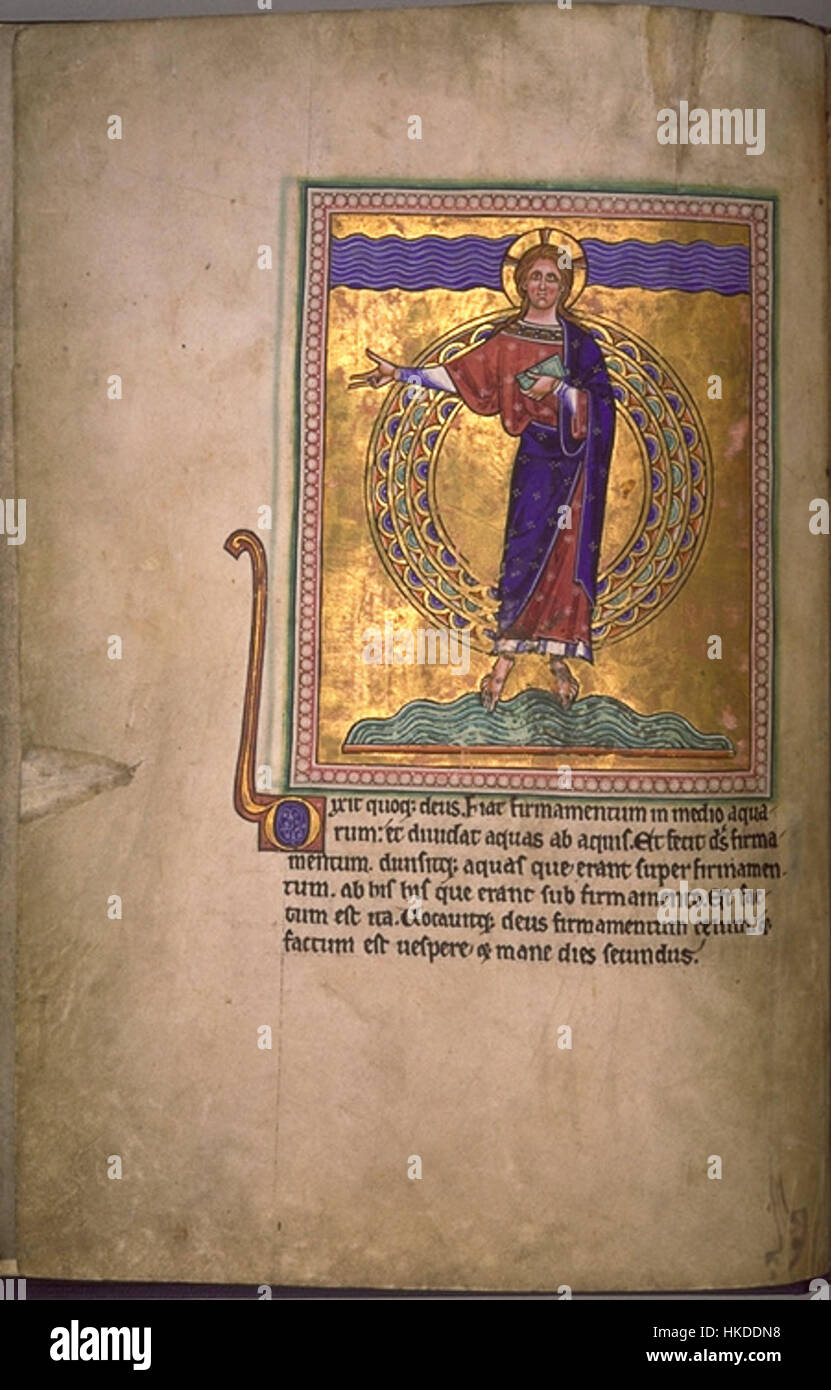 Dixit quoq; deus. Fiat firmamentum in medio aqua
rum: et diuidat aquas ab aquis. Et fecit ds firma
mentum. diuisitq; aquas que erant super firmamen-
tum. ab his his que erant sub firmamento. Et fac
tum est ita. Uocauitq; deus firmamentum celum. &
factum est uespere, & mane dies secundus.
a
alamy
alamy
a
alamy
Image ID: HKDDN8
www.alamy.com